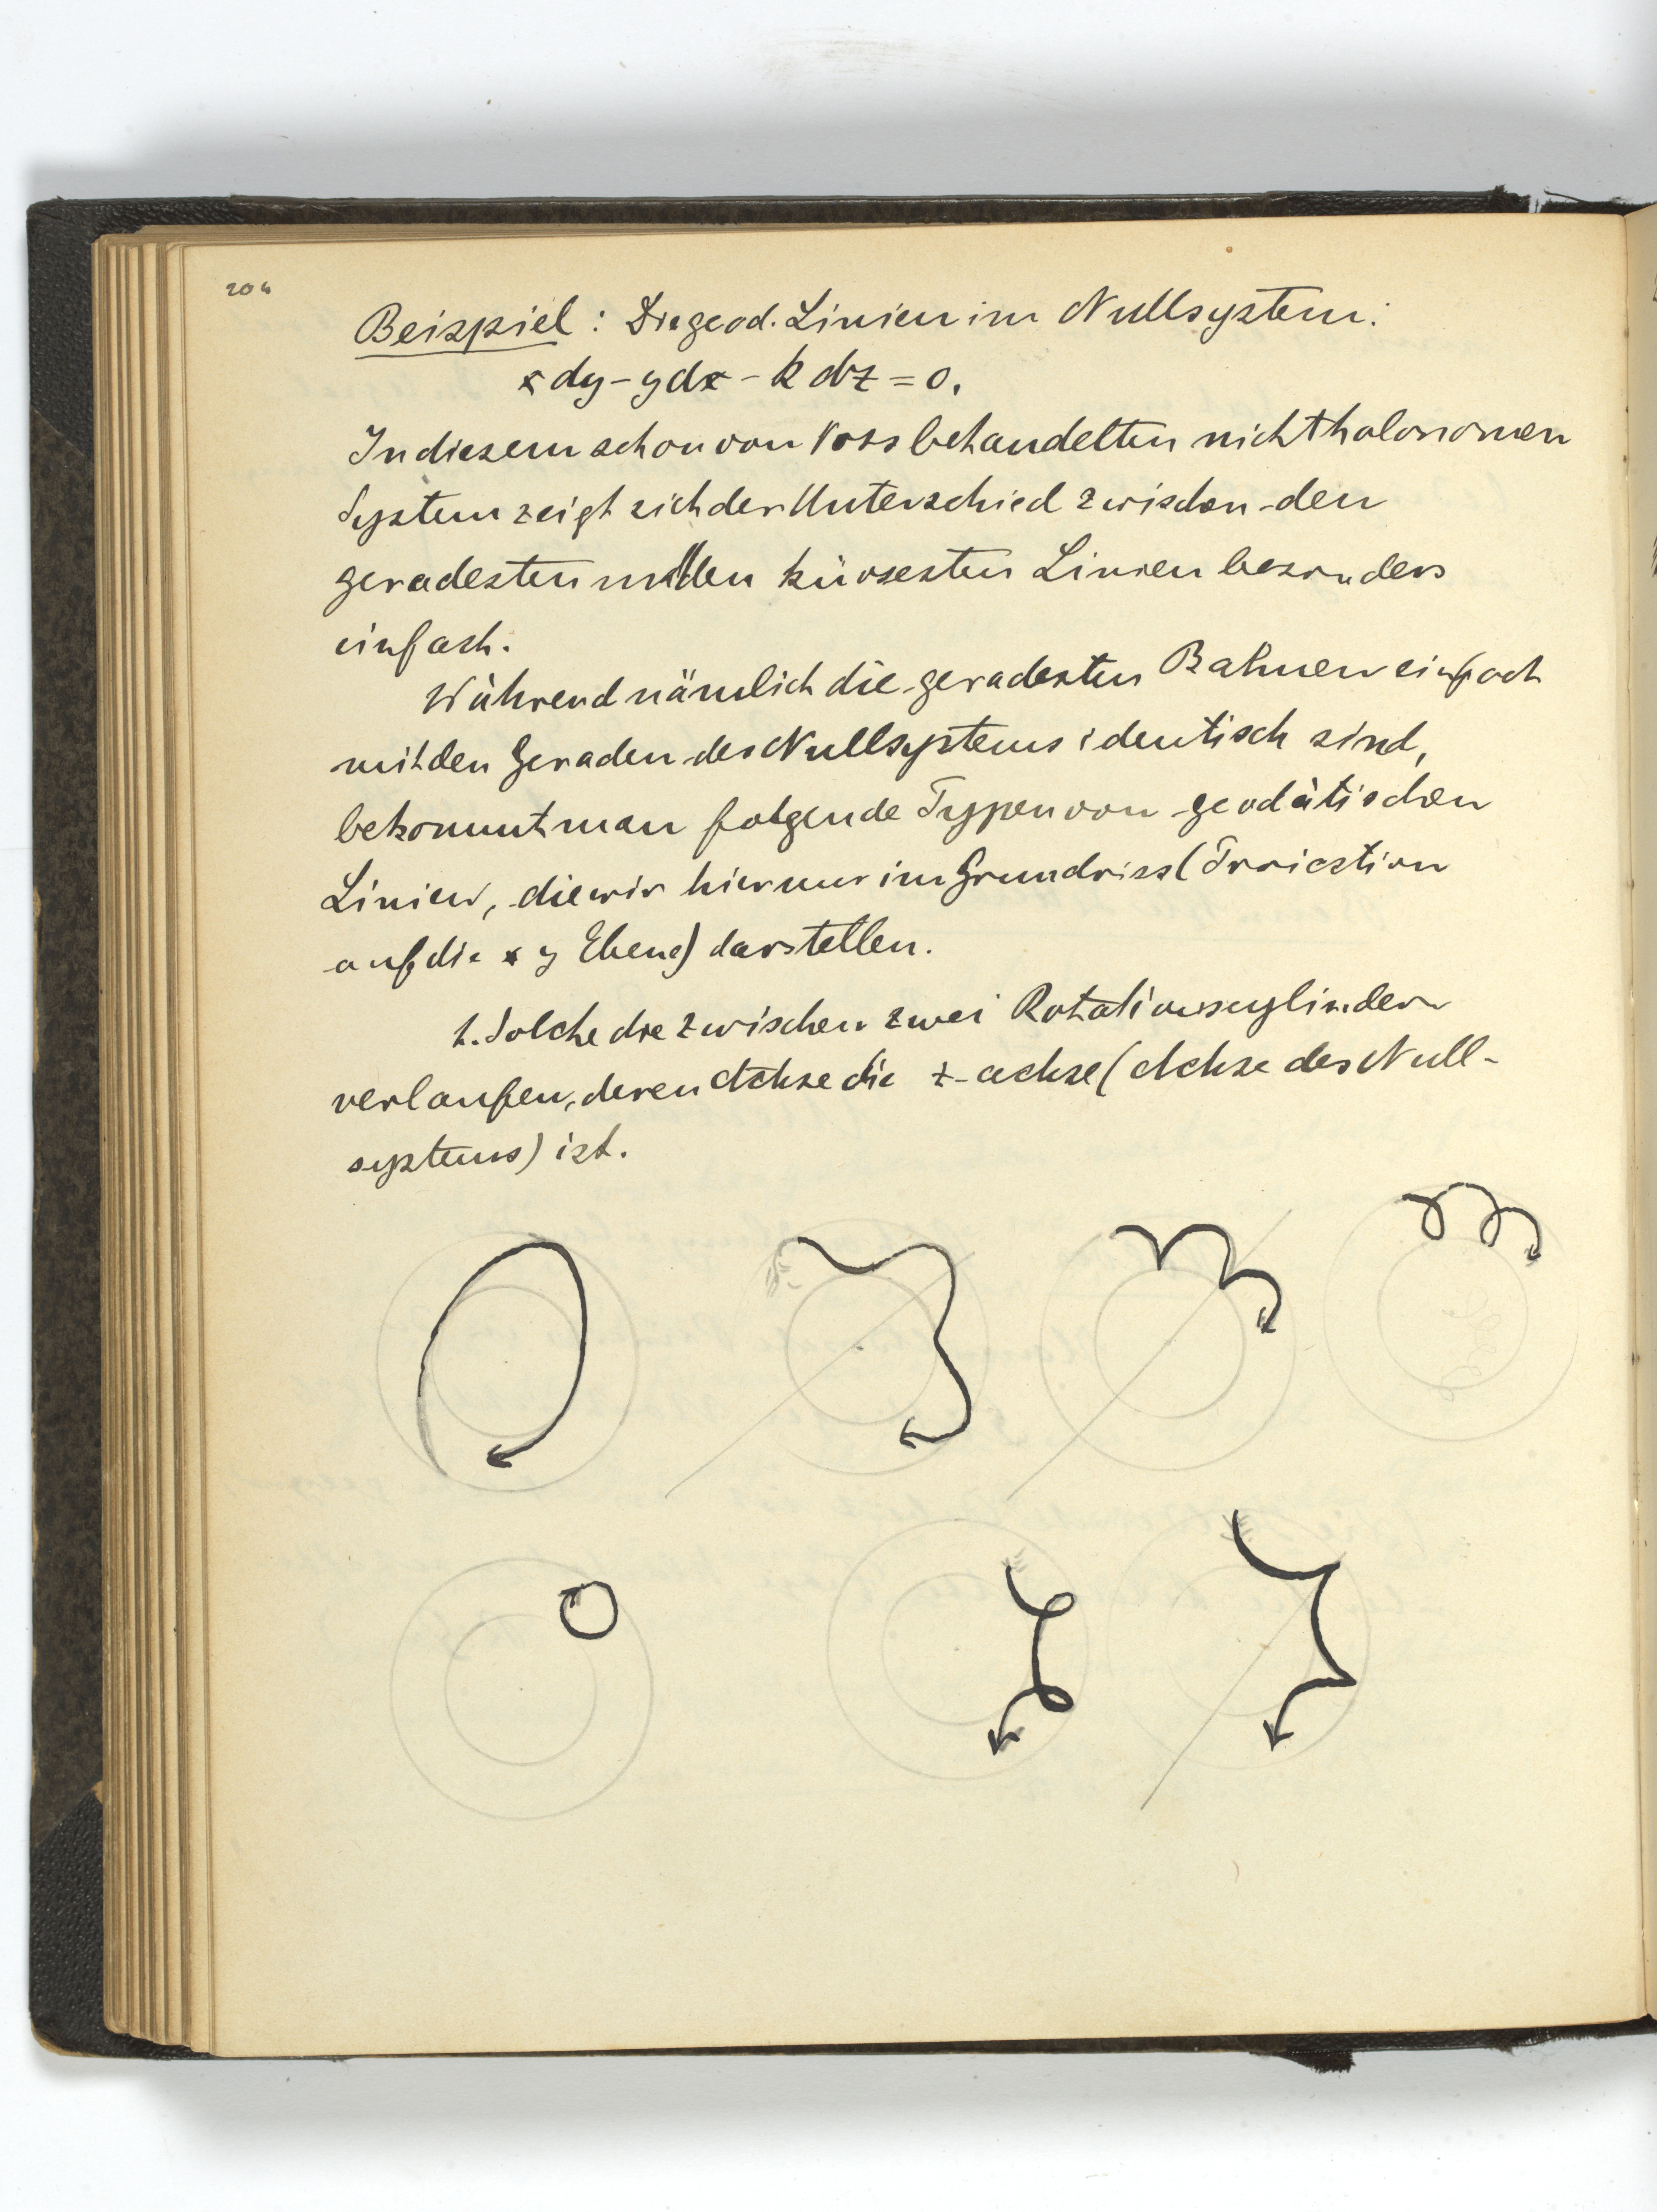 204
Beispiel : Die geod. Linien im Nullsystem:
x dy - y dx - k dz = 0.
In diesem schon von Voss behandelten nichtholonomen
System zeigt sich der Unterschied zwischen den
geradesten und den kürzesten Linien besonders
einfach.
Während nämlich die geradesten Bahnen einfach
mit den Geraden des Nullsystems identisch sind,
bekommt man folgende Typen von geodätischen
Linien, die wir hier nur im Grundriss (Projection
auf die x y Ebene) darstellen.
1. Solche die zwischen zwei Rotationscylindern
verlaufen, deren Achse die z-achse (Achse des Null-
systems) ist.